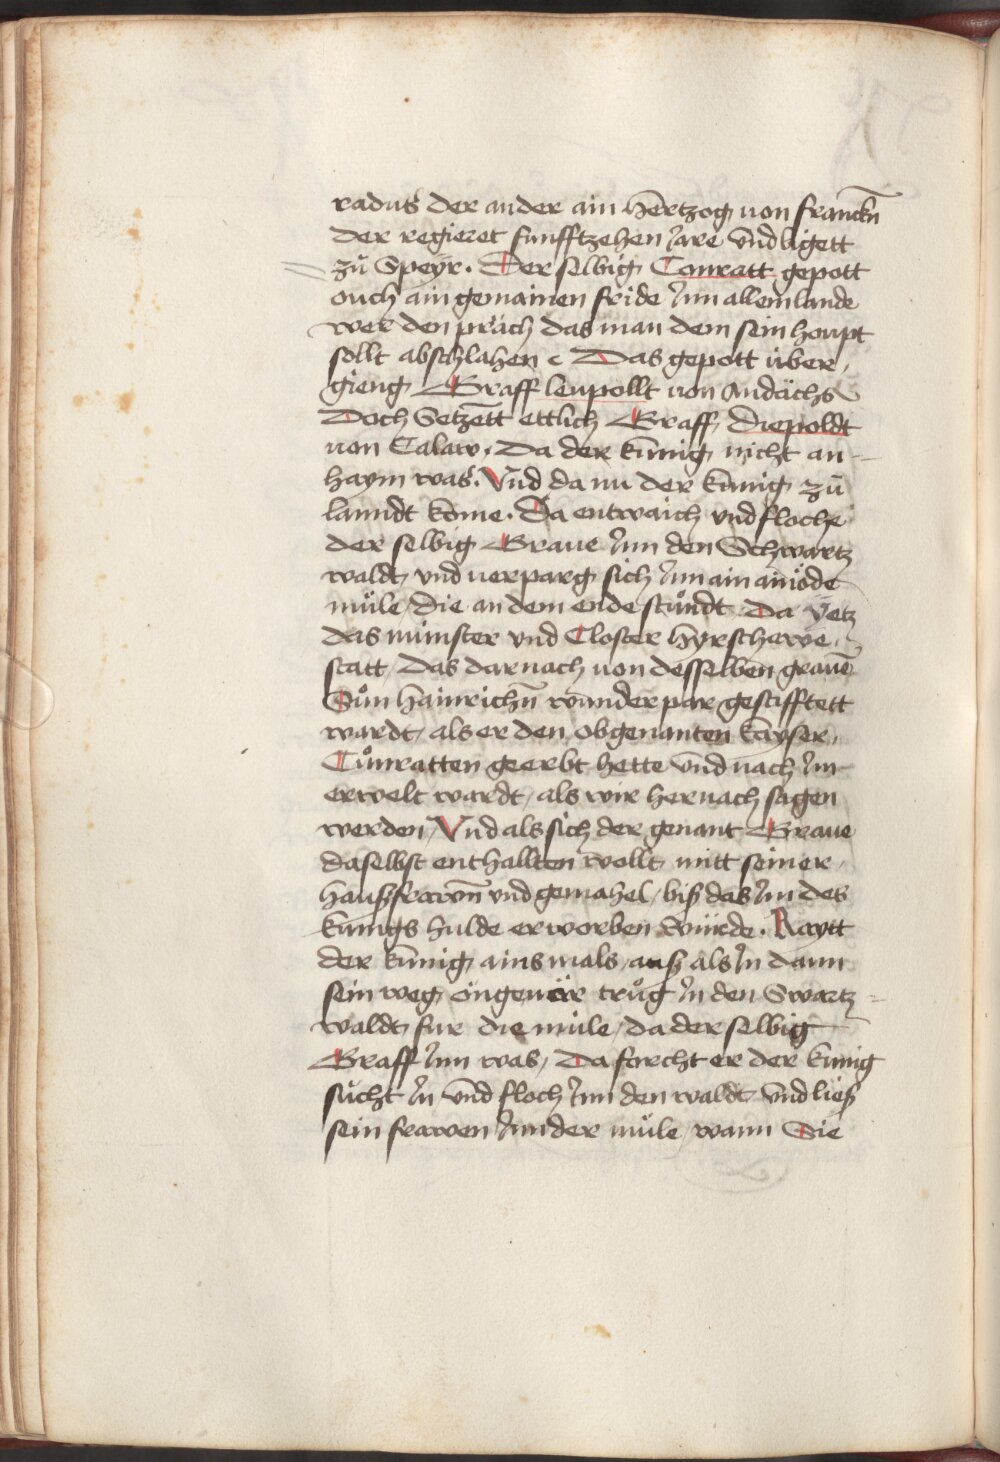 radus der ander ain hertzog von franckn̄
der regieret funfftzehen Jare vnd ligett
zů Speyr. Der selbig Conratt gepott
ouch ain gemainen fride Jnn allem lande
wer den präch das man dem sein houpt
söllt abschlahen c Das gepott über
gieng Graff leupollt von Andächs
Doch Setzett ettlich Graff diepoldt
von Calaw. Da der künig nicht an-
haym was. Vnd da nu der künig zů
lanndt kome. Da entwaich vnd floche
der selbig Graue Jnn den Schwartz
waldt vnd verparg sich Jnn ain ainöde
müle, die an dem ende stůndt Da yetz
das münster vnd Closter hyrschawe
statt, das darnach von desselben grauē
Sůn hainrichn̄ wunderpar gestifftett
wardt, als er den obgenanten kayser
Cůnratten geerbt hette vnd nach Jm
erwelt wardt, als wir hernach sagen
werden, Vnd als sich der genant Graue
daselbst enthallten wollt mitt seiner
haußfrawn̄ vnd gemahel, biß das Jm des
künigs hulde erworben würde. Raytt
der künig ainsmals auß als Jn dann
sein weg öngeuär trůg Jn den Swartz-
waldt fur die müle, da der selbig
Graff Jnn was, Da forcht er der künig
sůcht Jn vnd floch Jnn den waldt vnd ließ
sein frawen Jnn der müle, wann Sie